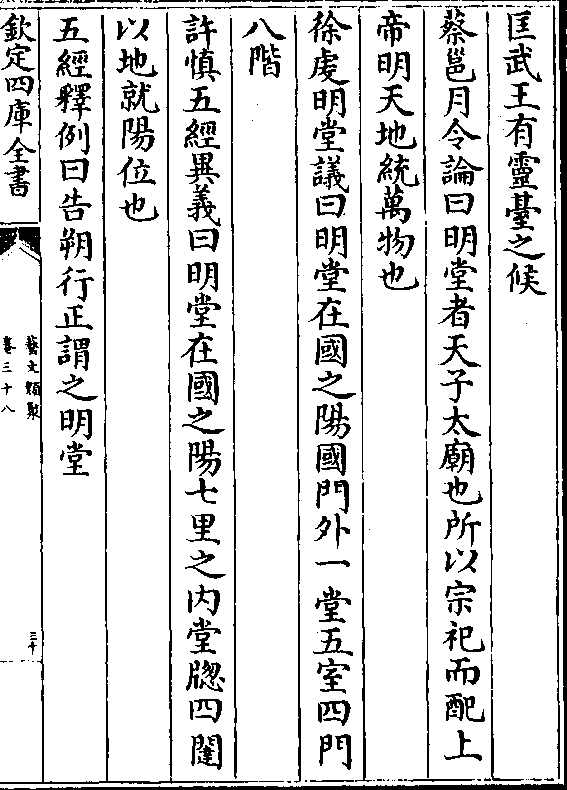 匡武王有靈臺之候
蔡邕月令論曰明堂者天子太廟也所以宗祀而配上
帝明天地統萬物也
徐虔明堂議曰明堂在國之陽國門外一堂五室四門
八階
許慎五經異義曰明堂在國之陽七里之内堂牕四闥
以地就陽位也
五經釋例曰告朔行正謂之明堂
欽定四庫全書
藝文類聚
卷三十八
三十